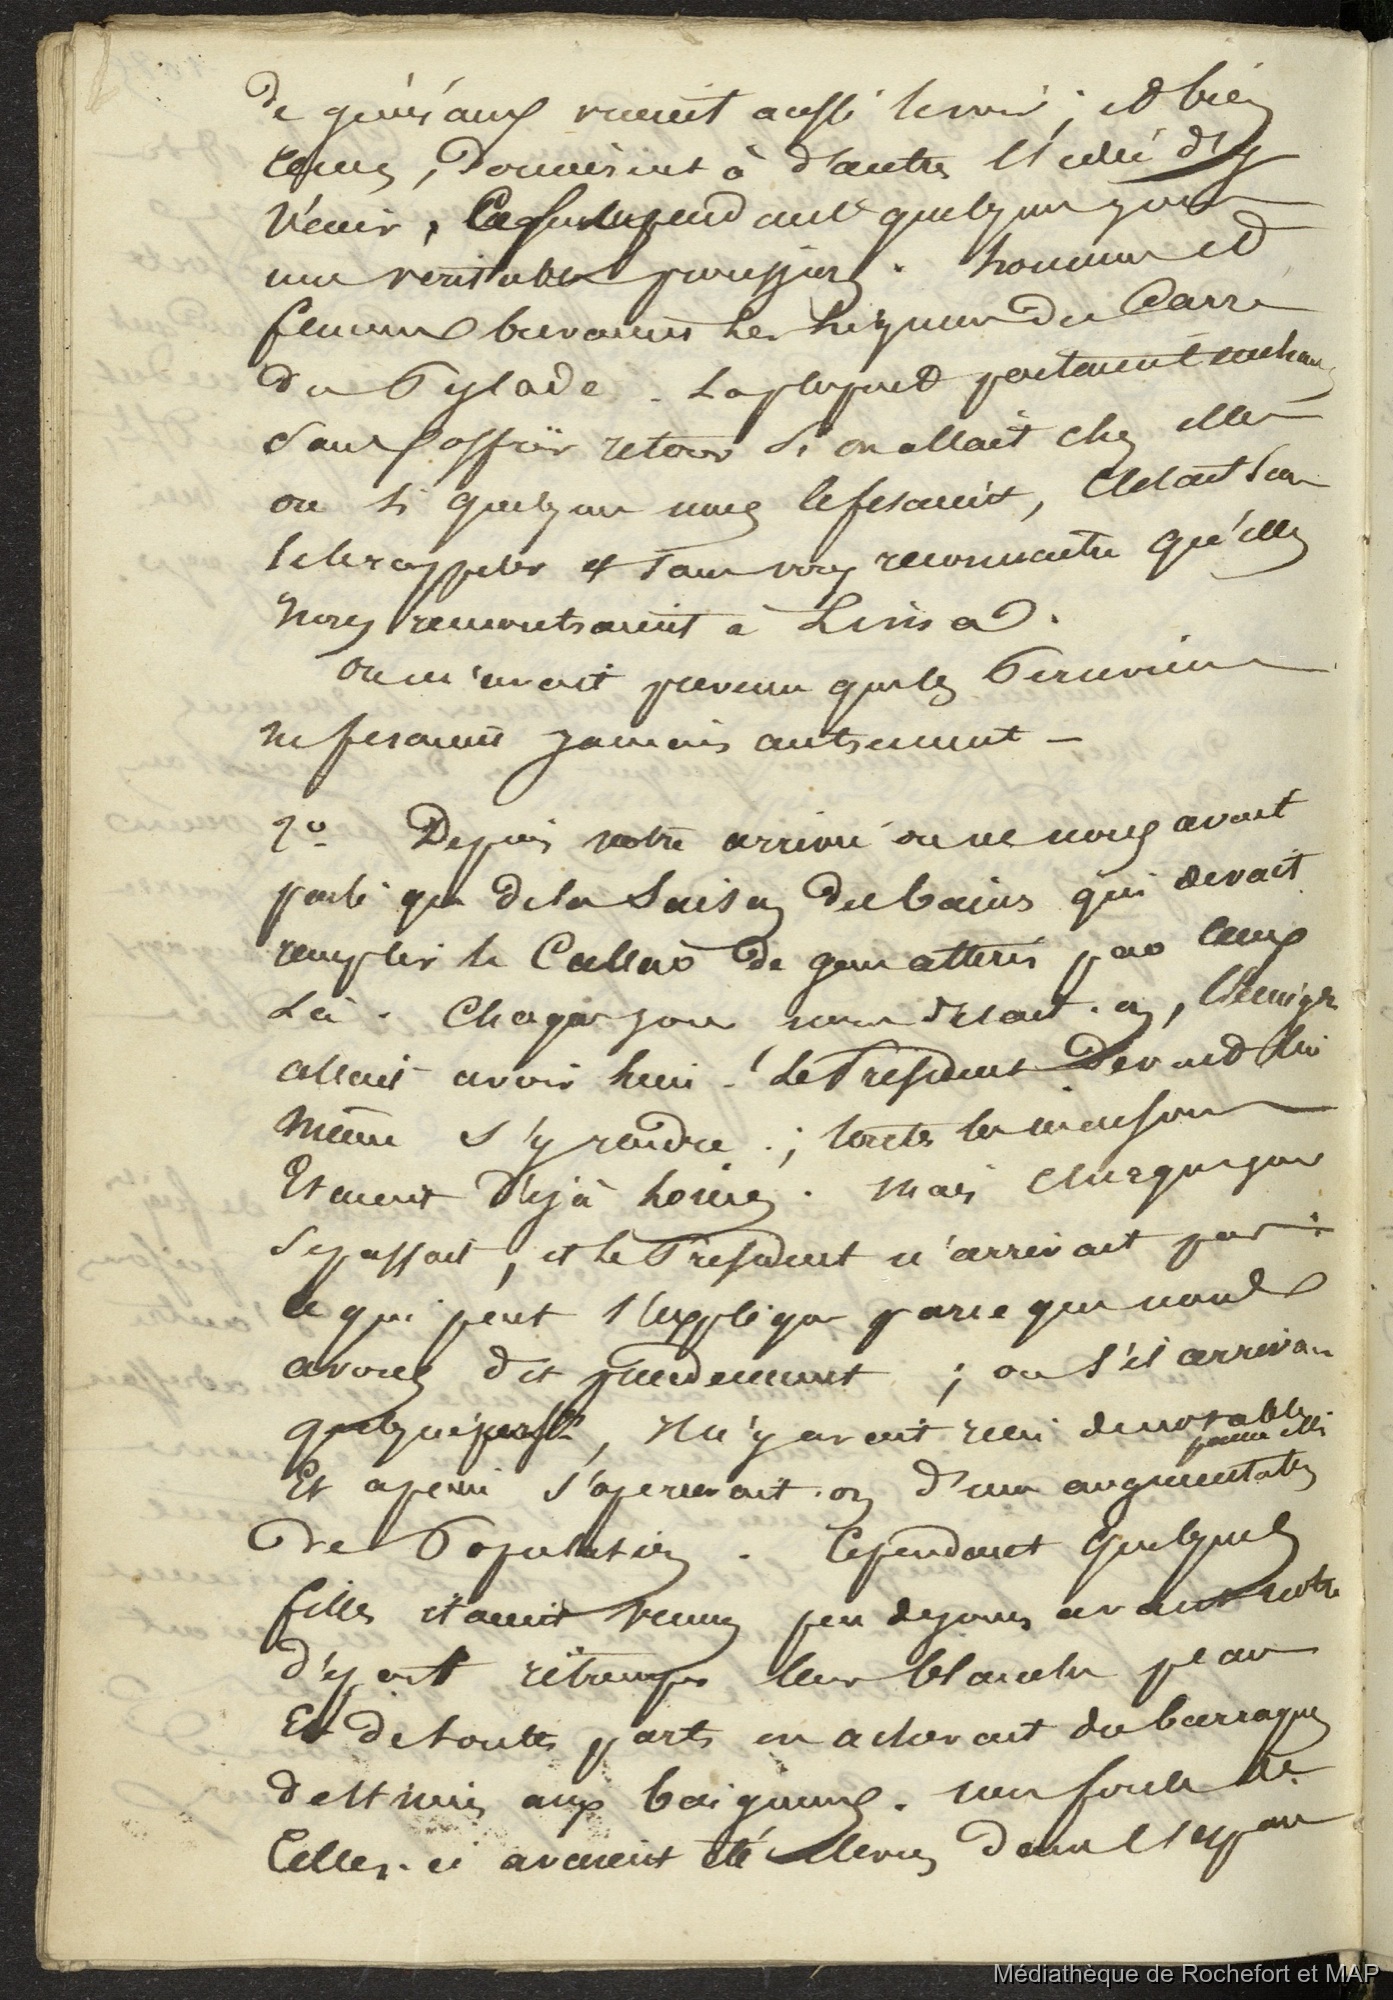 de génériaux vinrent aussi le voir ; et bien
reçus, donnèrent à d'autres l'idée d'y
venir, Ce fut pendant quelques jours
une veritable procession. hommes et
femmes buvaient les liqueurs du Carré
du Pylade. La plupart partaient enchantés
sans offrir retour si on allait chez elles
ou si quelques unes le fesaient, C'etait sans
se le rappeler et sans vous reconnaitre qu'elles
nous remontraient à Lima.
On m'avait prevenu que les Peruviens
ne fesaient jamais autrement —
7° Depuis notre arrivée on ne nous avait
parlé que de la Saison des bains qui devait
remplir le Callao de gens attirés par ceux
là. Chaque jour nous disait-on,
allait avoir lieu. Le President devait lui
même s'y rendre ; toutes les maisons
Etaient déjà louées. Mais Chaque jour
se passait, et le President n'arrivait pas :
ce qui peut s'expliquer par ce que nous
avons dit précédemment ; ou s'il arrivait
quelques personnes, il n'y avait rien de notable
parmi elles
Et à peine s'apercevait-on d'une augmentation
de Population. Cependant quelques
filles etaient venues peu de jours avant notre
départ retremper leur blanche peau
Et de toutes parts on achevait des barraques
destinées aux baigneurs. une foule de
Celles-ci avaient été élevées dans l'espace
Médiathèque de Rochefort et MAP